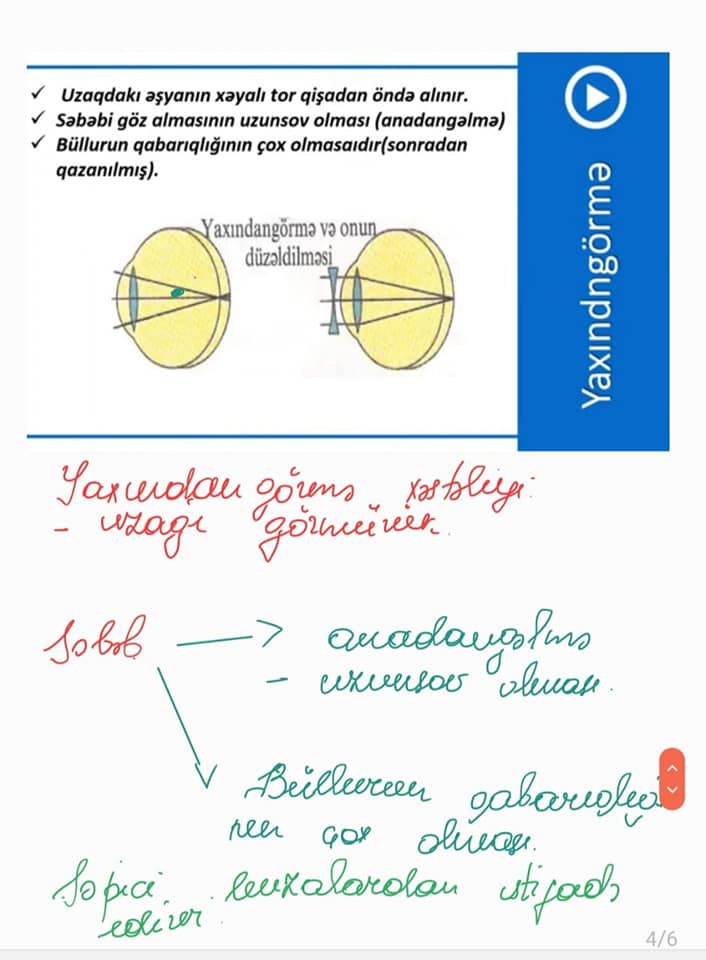 ✓ Uzaqdakı əşyanın xəyalı tor qişadan öndə alınır.
✓ Səbəbi göz almasının uzunsov olması (anadangəlmə)
✓ Büllurun qabarıqlığının çox olmasaıdır(sonradan
qazanılmış).
Yaxındangörmə və onun
düzəldilməsi
Yaxındngörmə
Yaxından görmə xəstəliyi:
- uzağı görmürük.
Səbəb → anadangəlmə
- uzunsov olması.
Büllurun qabarıqlığı
nın çox olması.
Səpici linzalardan istifadə
edilir.
4/6